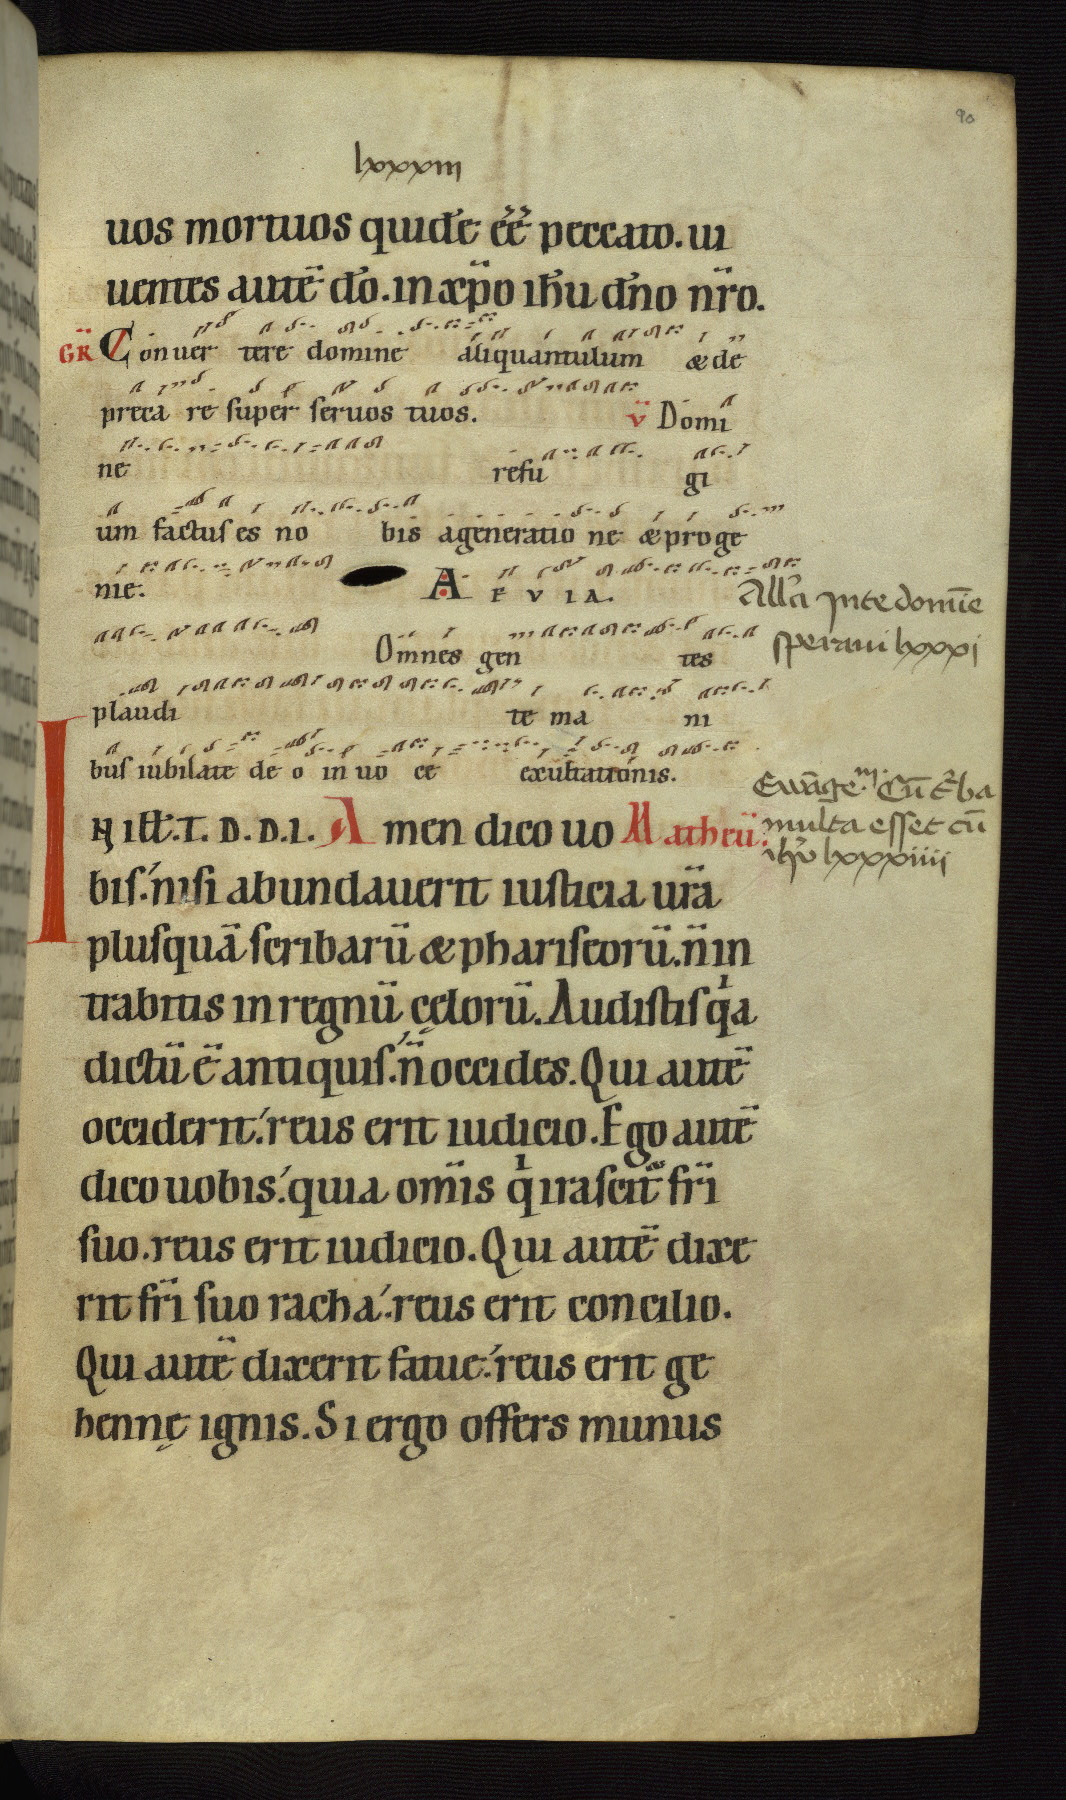 90
lxxxiii
uos mortuos quidē eē peccato. ui
uentes autē dō. in xp̄o ihū dn̄o nr̄o.
GR Conuer tere domine aliquantulum & de
preca re super seruos tuos. v Domi
ne refu gi
um factus es no bis a generatio ne & proge
nie. A E V I A.
All'a In te domīe
speraui lxxxi
Omnes gen tes
plaudi te ma ni
bus iubilate deo in uo ce exultationis.
Ewāgem. Cū t'ba
multa esset cū
ihū lxxxiiii
IN ILL. T. D. D. I. Amen dico uo Matheū.
bis. nisi abundauerit iusticia ur̄a
plusquā scribarū & phariseorū. n̄ in
trabitis in regnū cęlorū. Audistis qa
dictū ē antiquis. n̄ occides. Qui autē
occiderit. reus erit iudicio. Ego autē
dico uobis. quia om̄is q irascit fr̄i
suo. reus erit iudicio. Qui autē dixe
rit fr̄i suo racha. reus erit concilio.
Qui autē dixerit fatue. reus erit ge
hennę ignis. Si ergo offers munus